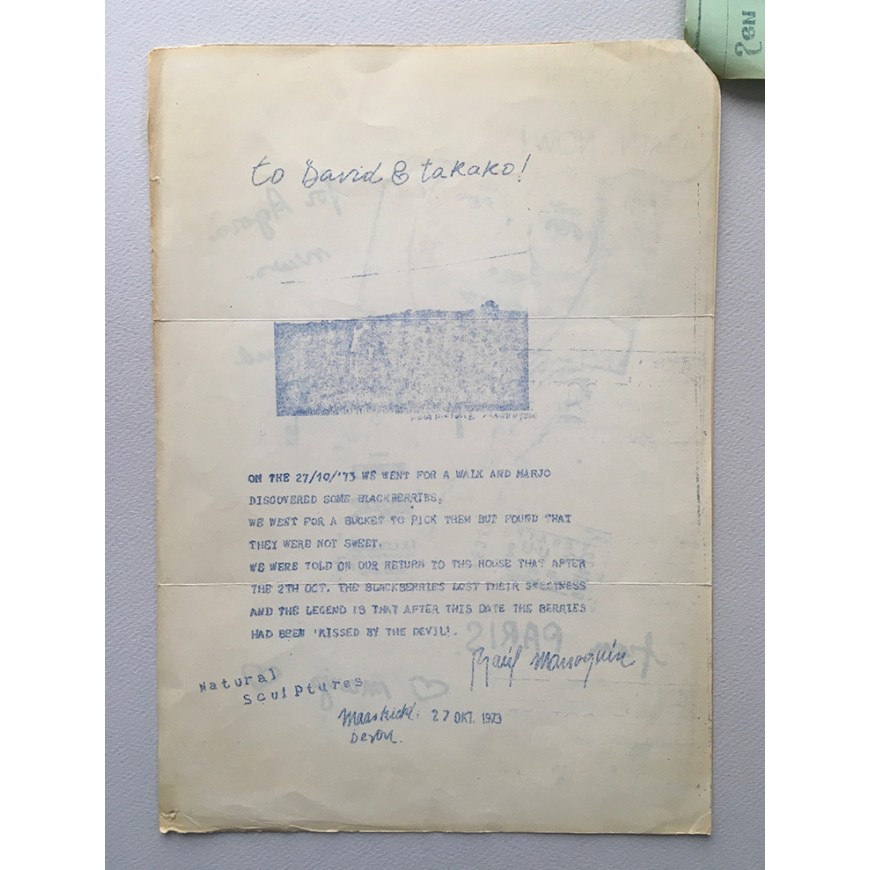 to David & takako!
ON THE 27/10/'73 WE WENT FOR A WALK AND MARJO
DISCOVERED SOME BLACKBERRIES,
WE WENT FOR A BUCKET TO PICK THEM BUT FOUND THAT
THEY WERE NOT SWEET.
WE WERE TOLD ON OUR RETURN TO THE HOUSE THAT AFTER
THE 2TH OCT. THE BLACKBERRIES LOST THEIR SWEETNESS
AND THE LEGEND IS THAT AFTER THIS DATE THE BERRIES
HAD BEEN 'KISSED BY THE DEVIL'.
Natural
Sculptures
27 OKT. 1973
Devon.
for Again
news
from PARIS